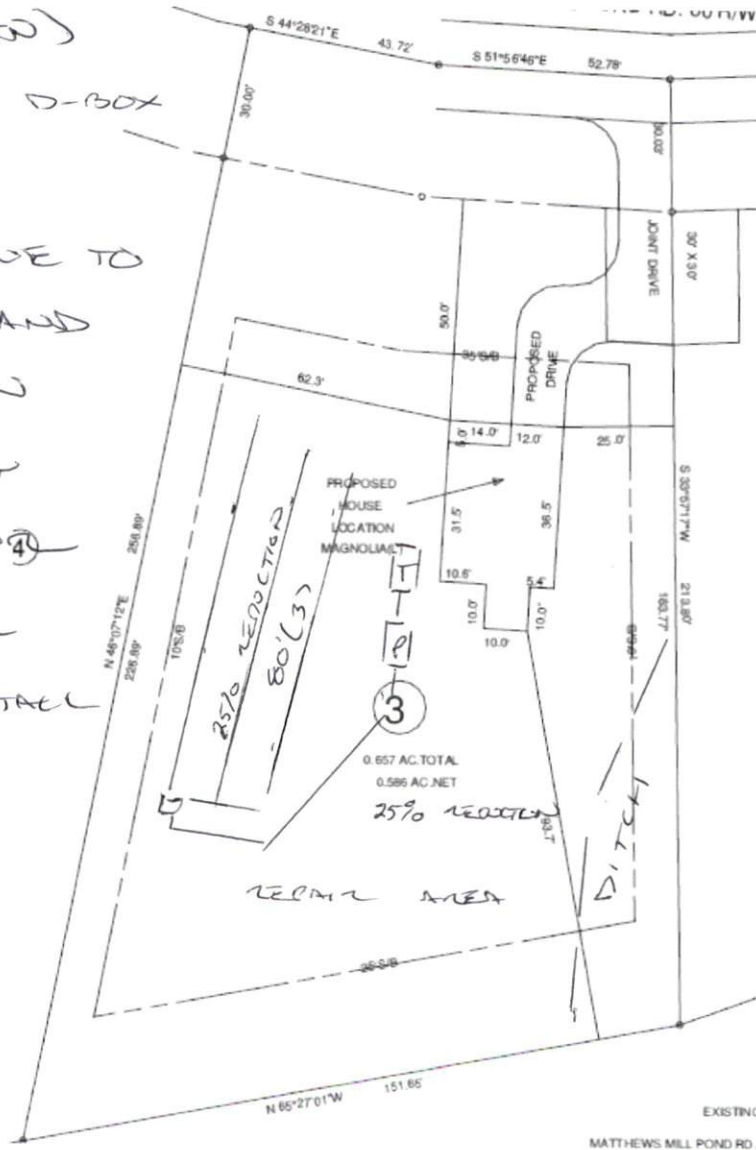 D-BOX
UE TO
AND
④
TALL
S 44°28'21"E
43.72'
S 51°56'46"E
52.78'
30.00'
30.03'
JOINT DRIVE
30' X 30'
50.0'
35'S/B
PROPOSED
DRIVE
62.3'
5.0'
14.0'
12.0'
25.0'
PROPOSED
HOUSE
LOCATION
MAGNOLIA(L)
31.5'
36.5'
10.6'
5.4'
10.0'
10.0'
10.0'
S 33°57'17"W
213.80'
183.77'
256.89'
N 46°07'12"E
226.89'
10'S/B
25% REDUCTION
80'(3)
T
P
3
D
0.657 AC.TOTAL
0.586 AC.NET
25% REDUCTION
93.7'
DITCH
REPAIR AREA
25'S/B
N 65°27'01"W
151.65'
EXISTING
MATTHEWS MILL POND RD.